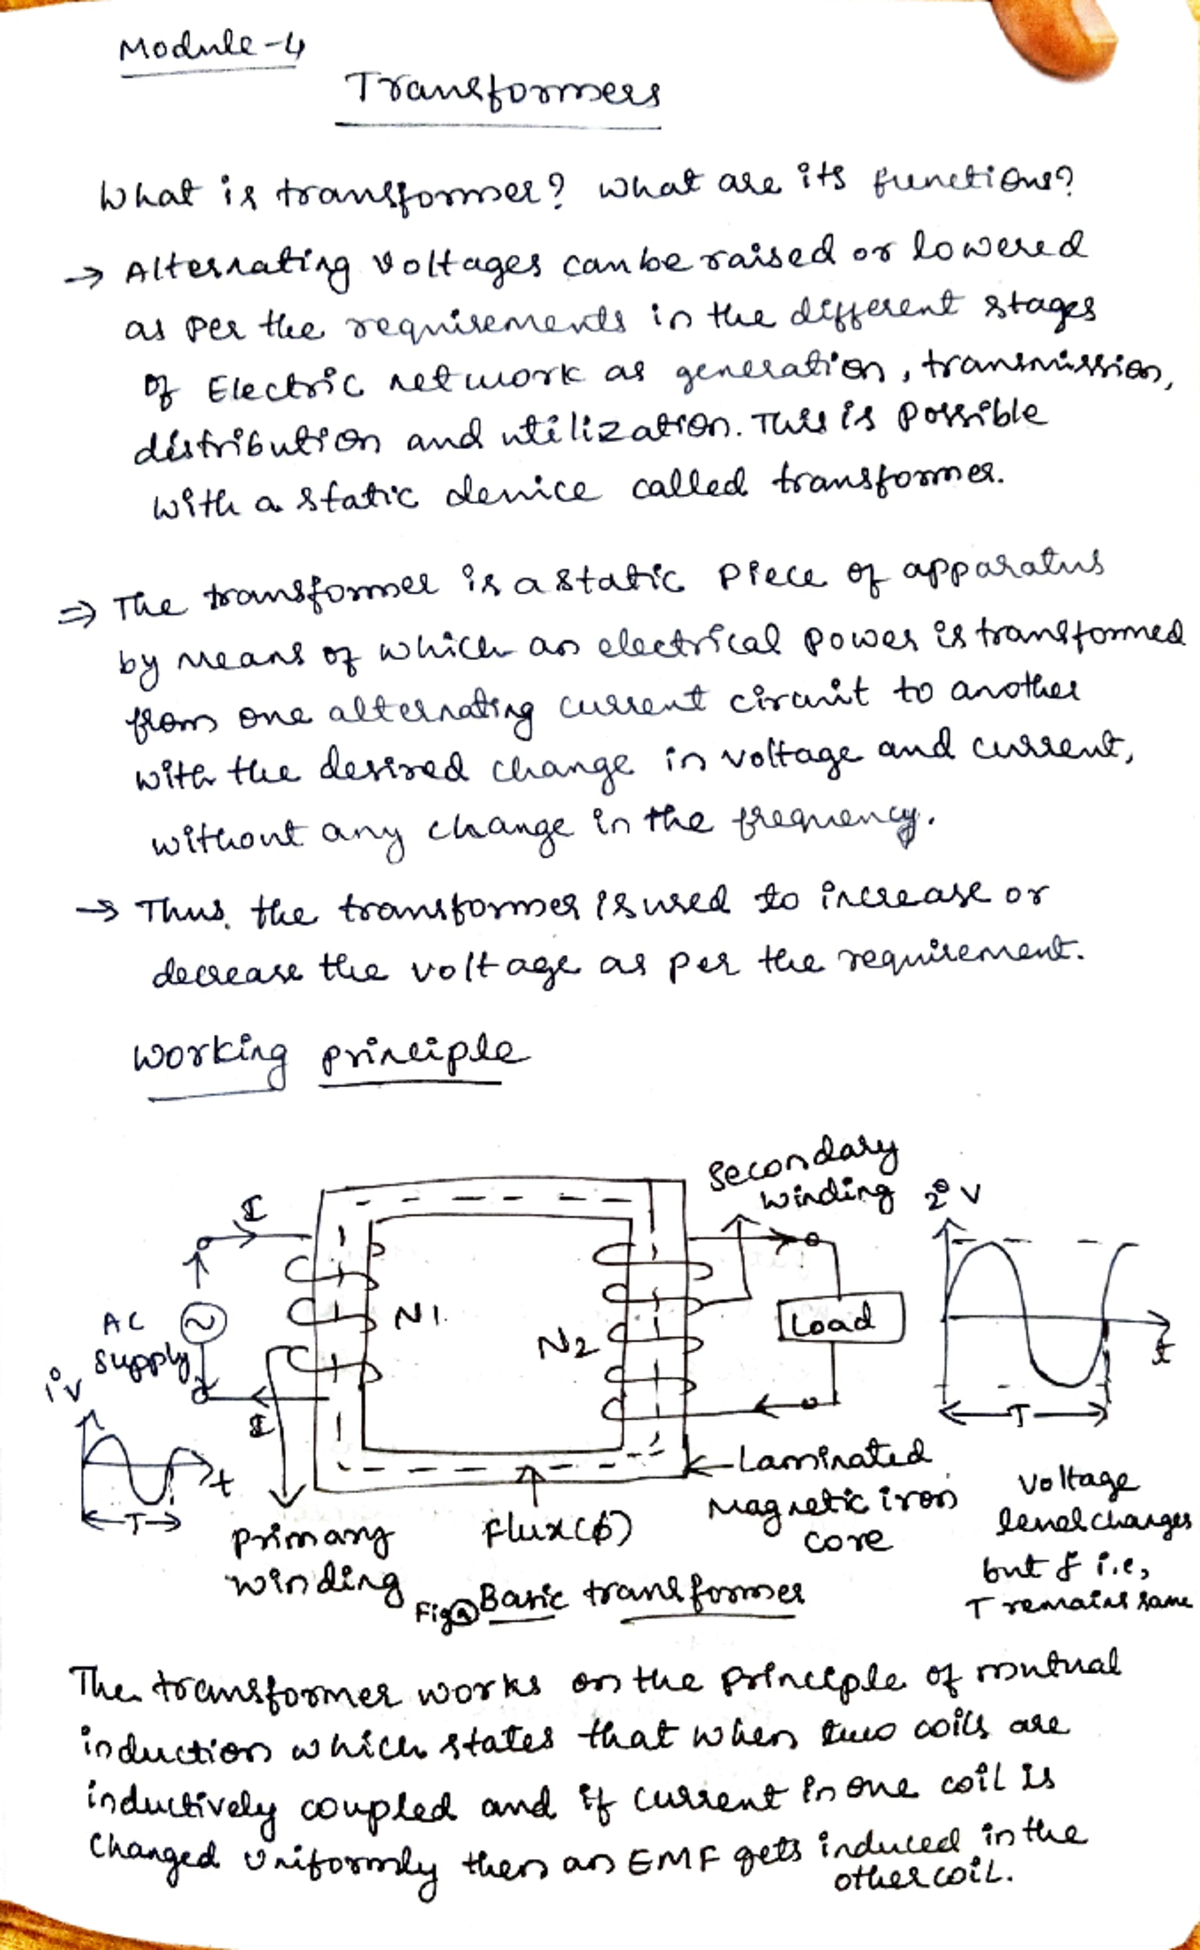 Module-4
Transformers
What is transformer? What are its functions?
→ Alternating voltages can be raised or lowered
as per the requirements in the different stages
of Electric network as generation, transmission,
distribution and utilization. This is possible
with a static device called transformer.
⇒ The transformer is a static piece of apparatus
by means of which an electrical power is transformed
from one alternating current circuit to another
with the desired change in voltage and current,
without any change in the frequency.
→ Thus, the transformer is used to increase or
decrease the voltage as per the requirement.
Working principle
Secondary
winding
2° V
I
AC
supply
N1
N2
Load
t
1° V
I
t
T
T
Primary
winding
Flux(ϕ)
Laminated
Magnetic iron
core
Voltage
level changes
but f i.e,
T remains same
Fig ⓐ Basic transformer
The transformer works on the principle of mutual
induction which states that when two coils are
inductively coupled and if current in one coil is
changed uniformly then an EMF gets induced in the
other coil.